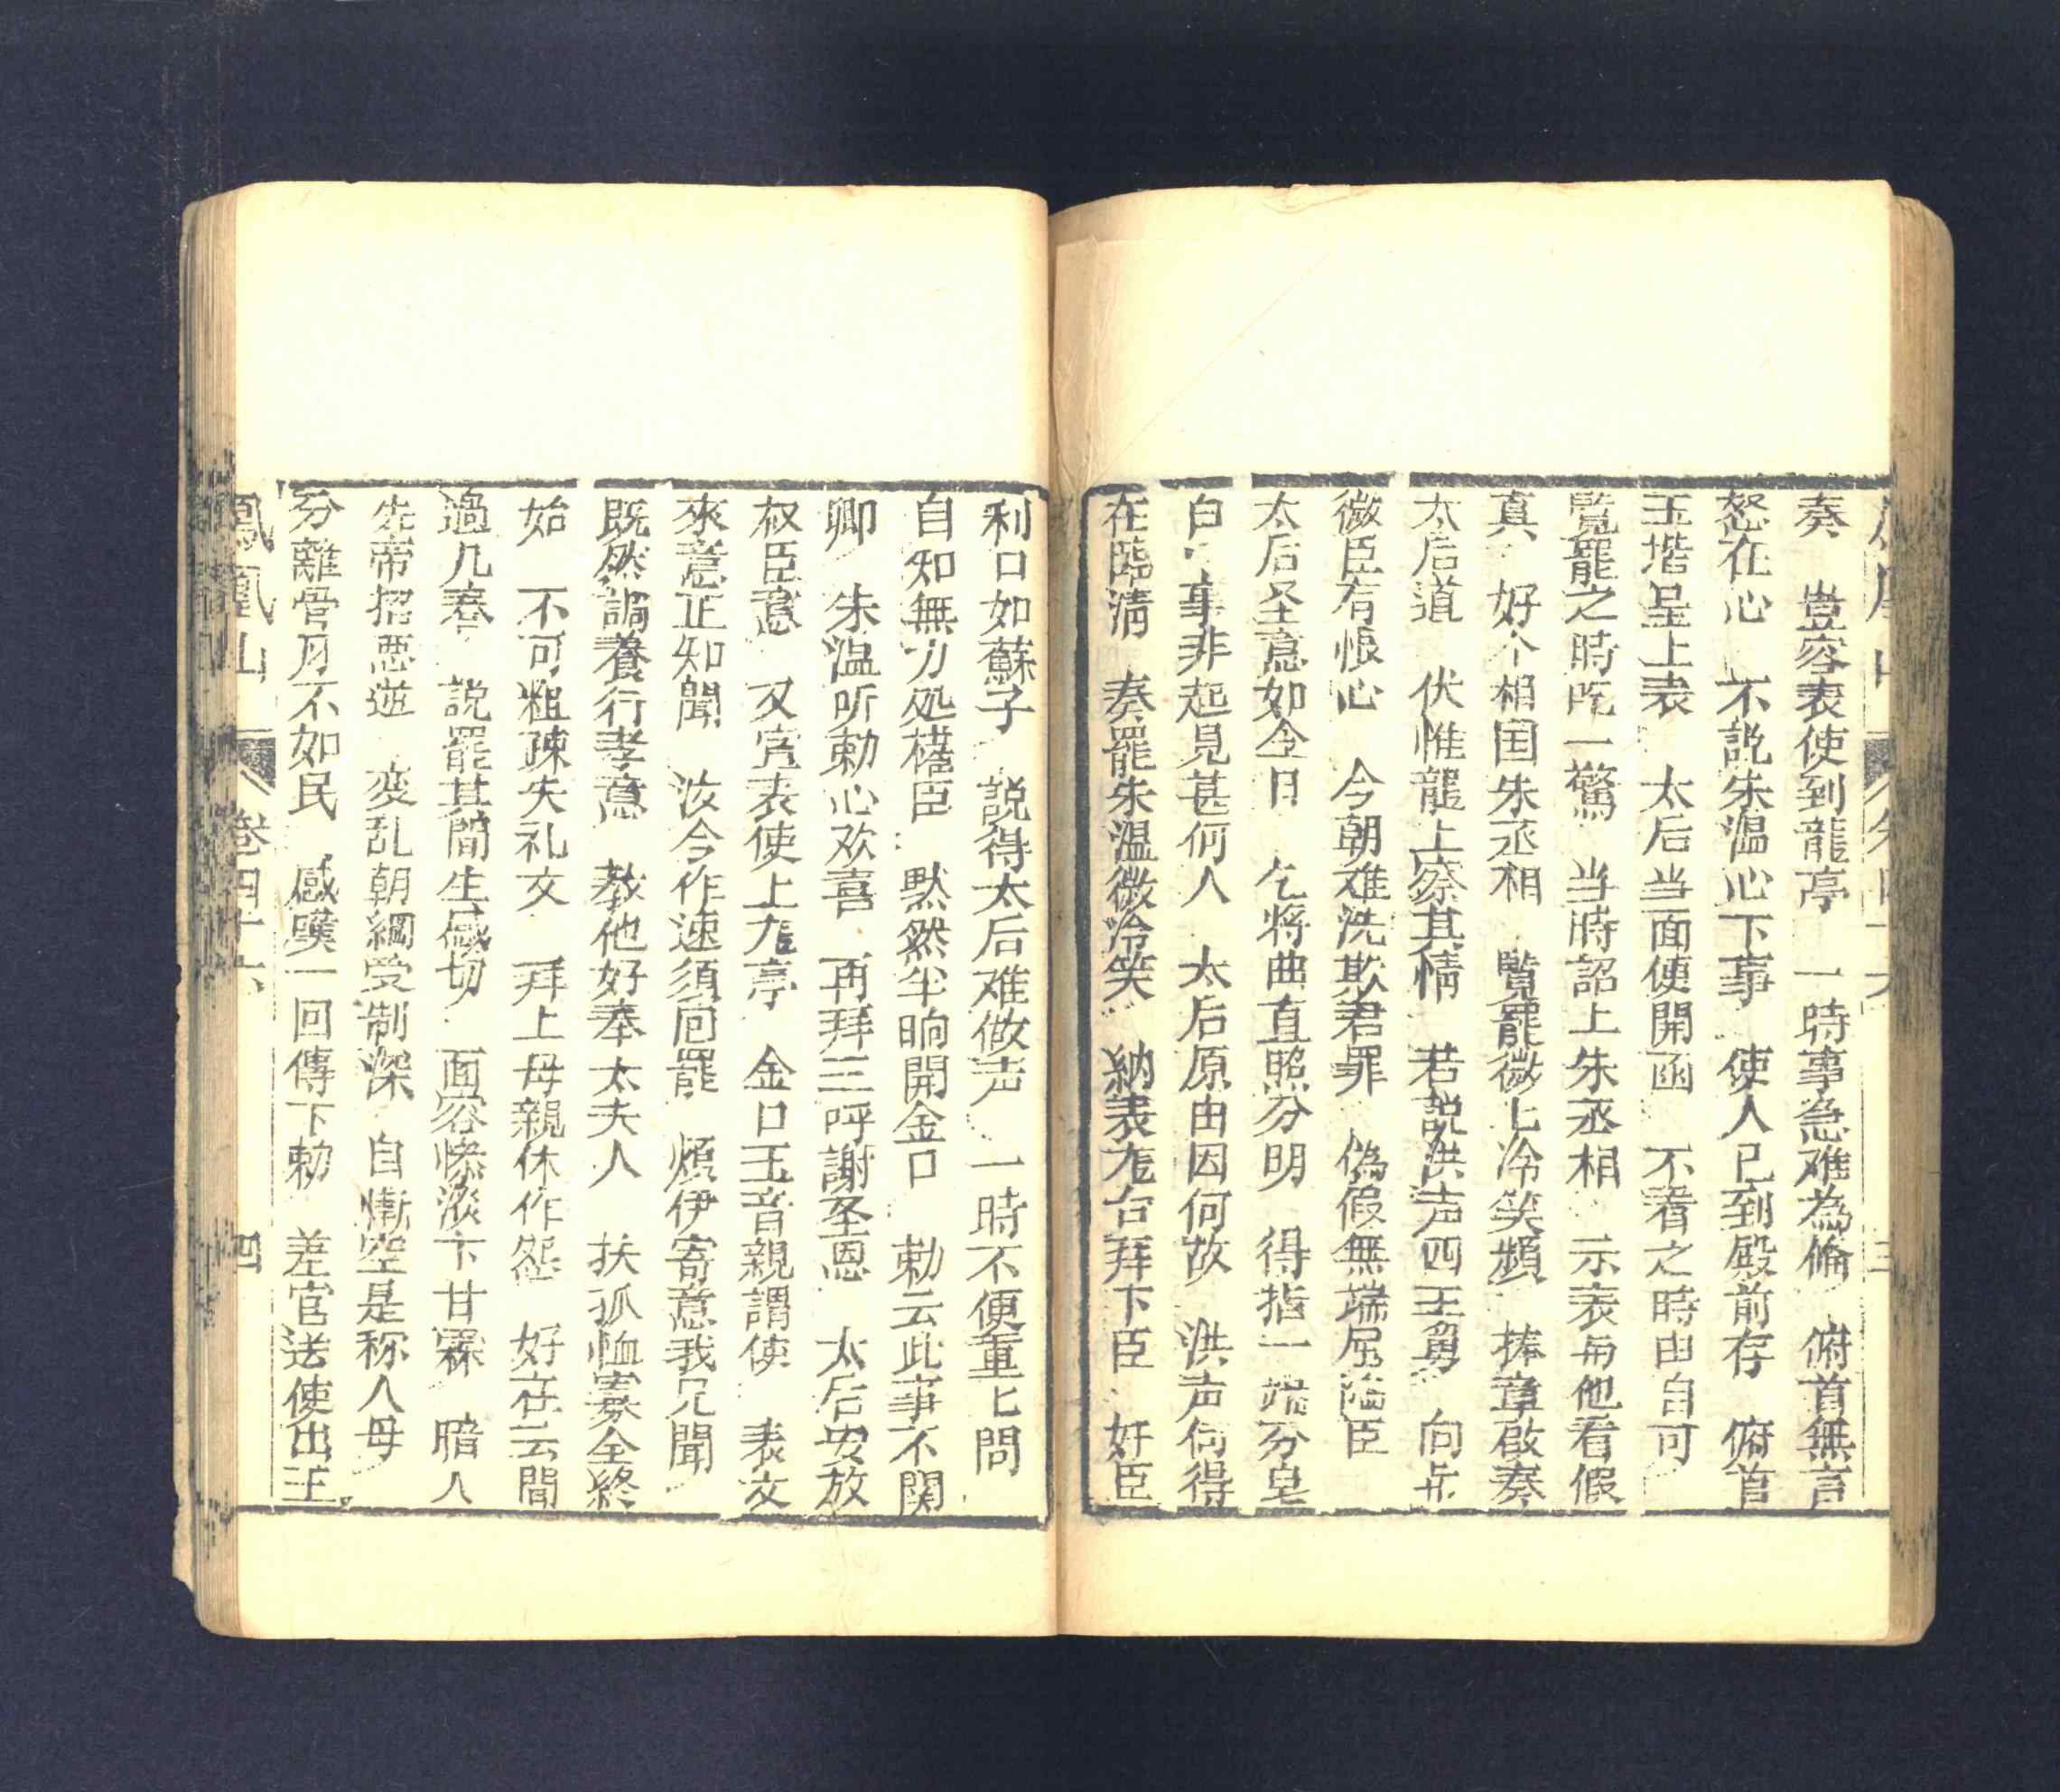 奏 豈容表使到龍亭 一時事急难為倫 俯首無言
怒在心 不説朱温心下事 使人已到殿前存 俯首
玉堦呈上表 太后当面使開函 不看之時由自可
覽罷之時吃一驚 当時詔上朱丞相 示表与他看假
真 好个相国朱丞相 覽罷微匕冷笑頻 捧章啟奏
太后道 伏惟龍上察其情 若説洪声四王舅 向与
微臣有恨心 今朝难洗欺君罪 偽假無端屈陥臣
太后圣意如今日 乞将曲直照分明 得指一端分皂
白 事非起見甚何人 太后原由因何故 洪声何得
在臨清 奏罷朱温微冷笑 納表尨台拜下臣 奸臣
利口如蘇子 説得太后难做声 一時不便重匕問
自知無力処権臣 黙然半晌開金口 勅云此事不関
卿 朱温听勅心欢喜 再拜三呼謝圣恩 太后安放
叔臣意 又宣表使上尨亭 金口玉音親謂使 表文
來意正知聞 汝今作速須囘罷 煩伊寄意我兄聞
既然謫養行孝意 教他好奉太夫人 扶孤恤寡全終
始 不可粗疎失礼文 拜上母親休作怨 好在云間
過几春 説罷其間生感切 面容慘淡下甘霖 暗人
先帝招悪逰 変乱朝綱受制深 自慚空是称人母
分離骨月不如民 感嘆一回傳下勅 差官送使出王
鳳凰山 卷四十六 四